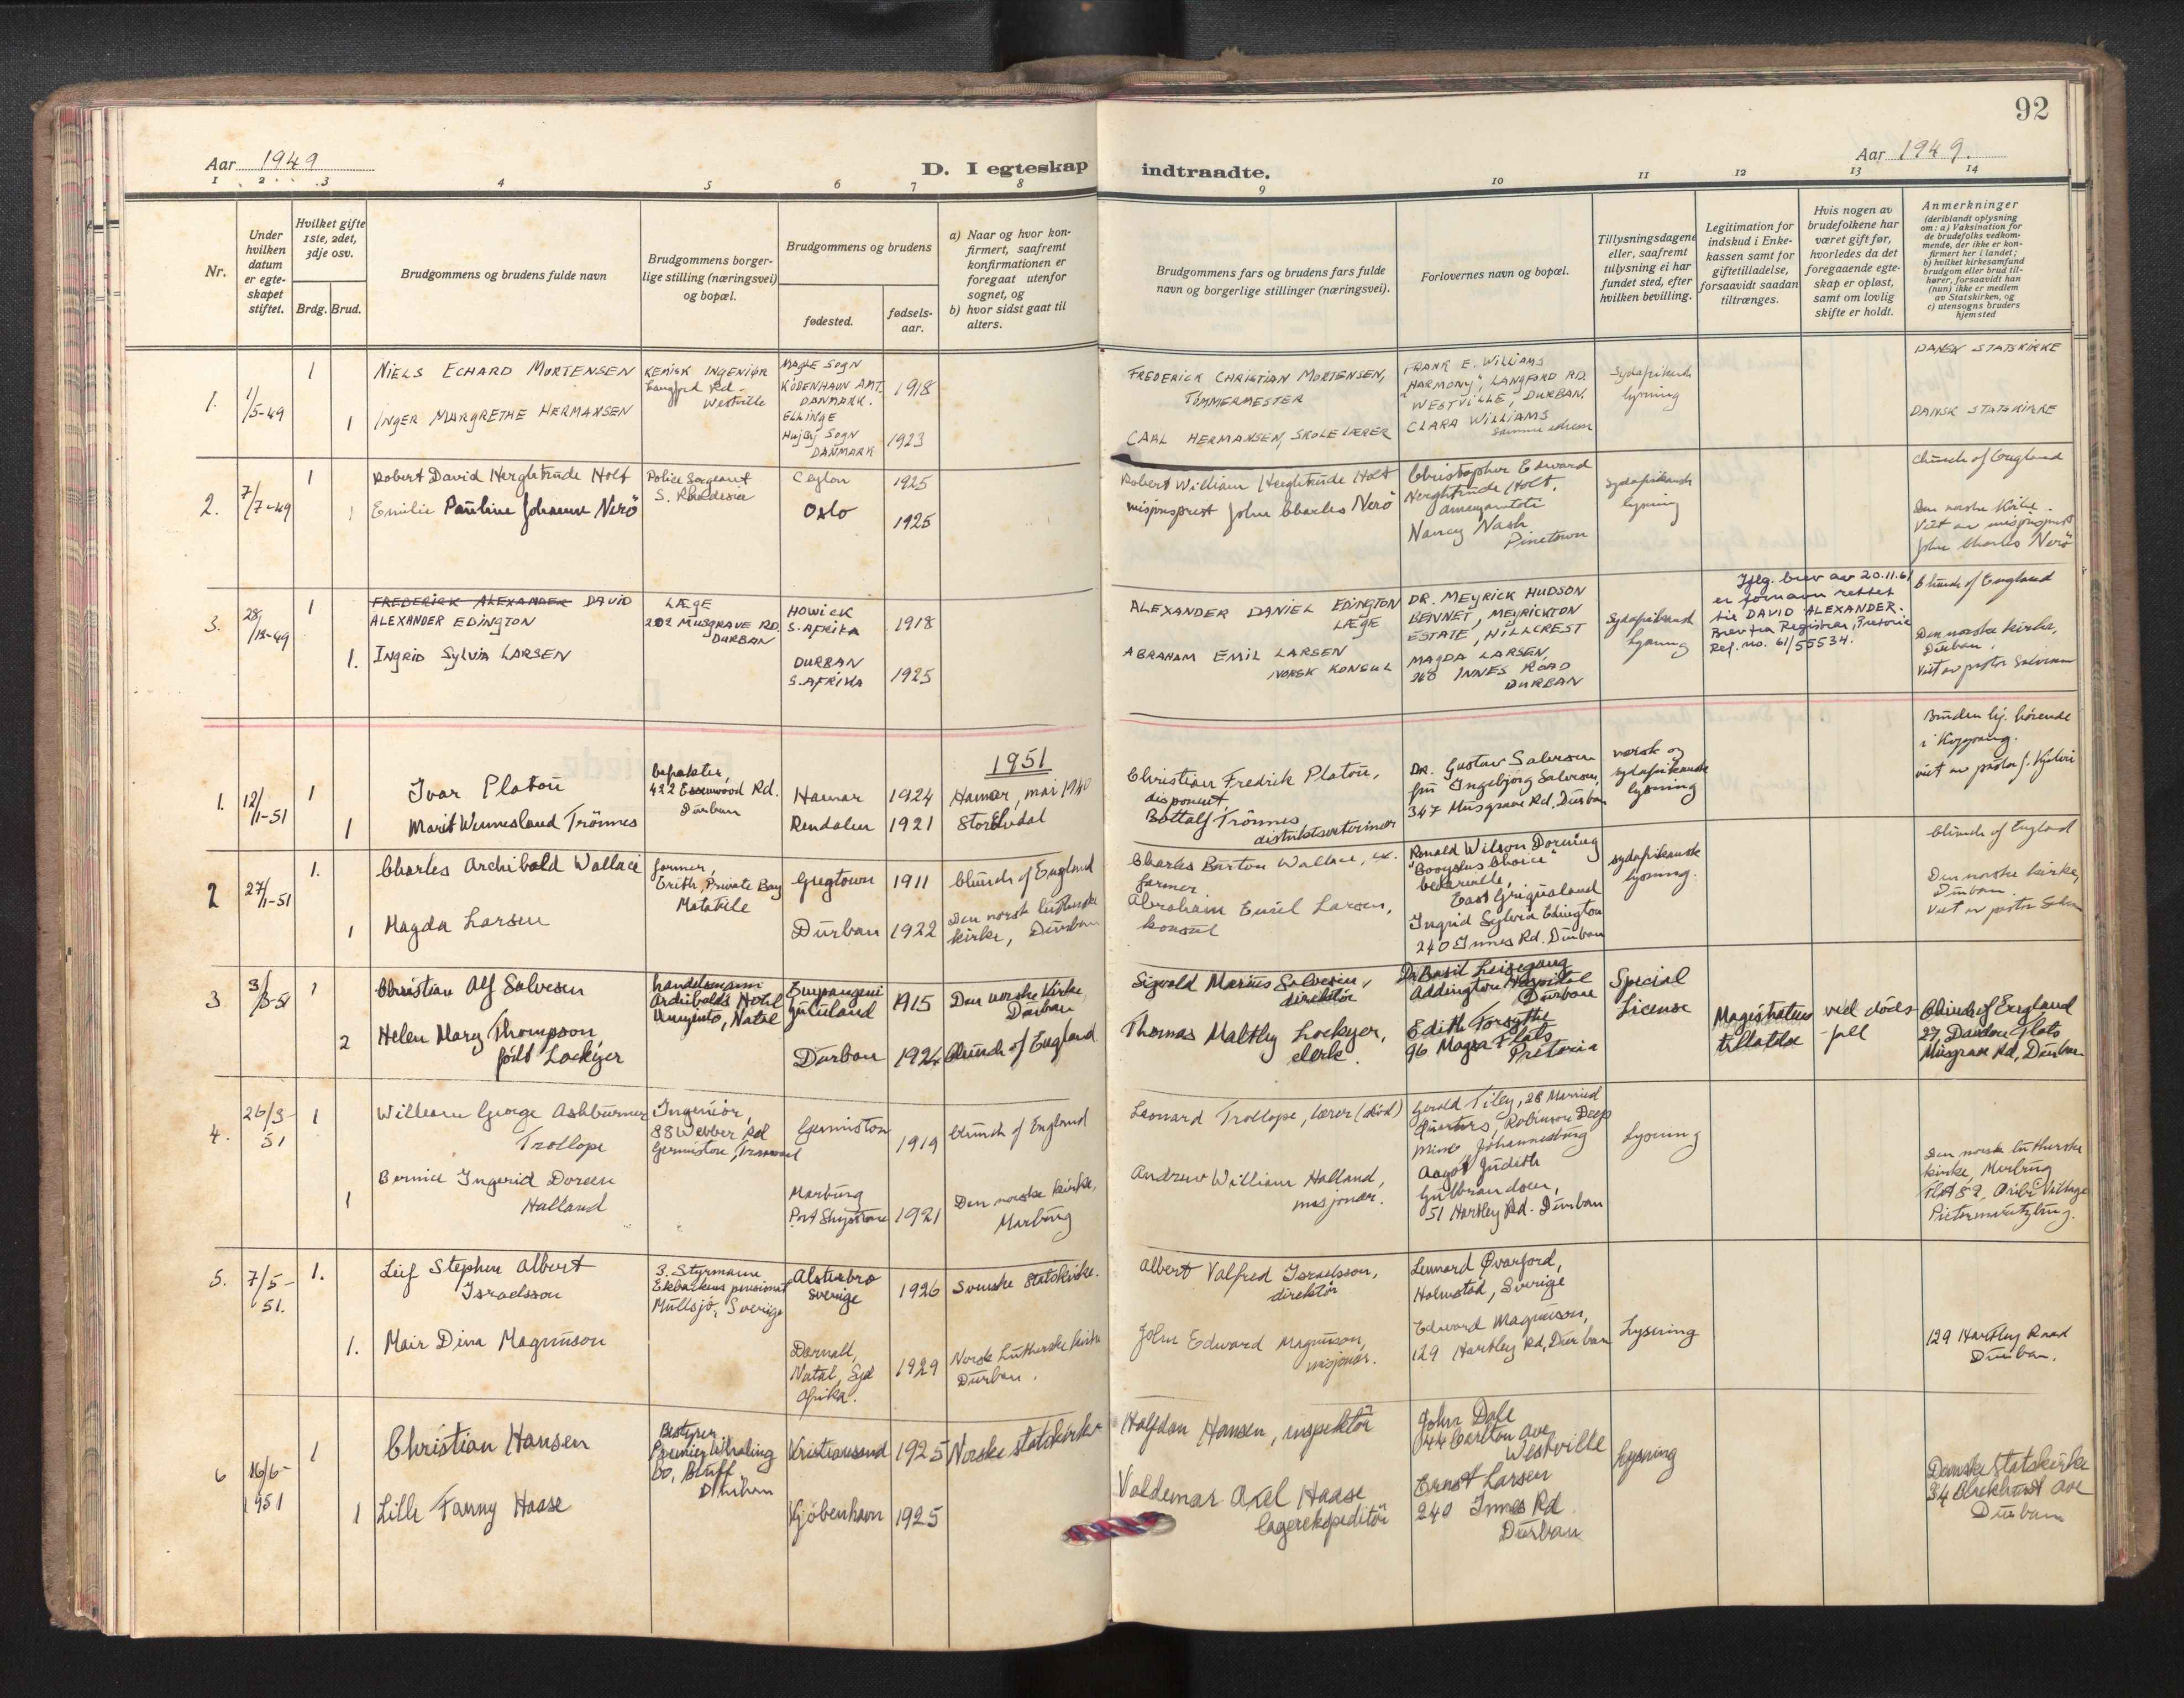 92
Aar 1949
D. I egteskap indtraadte.
Aar 1949.
1 2 3 4 5 6 7 8 9 10 11 12 13 14
Nr.
Under
hvilken
datum
er egte-
skapet
stiftet.
Hvilket gifte
1ste, 2det,
3dje osv.
Brdg. Brud.
Brudgommens og brudens fulde navn
Brudgommens borger-
lige stilling (næringsvei)
og bopæl.
Brudgommens og brudens
fødested.
fødsels-
aar.
a) Naar og hvor kon-
firmert, saafremt
konfirmationen er
foregaat utenfor
sognet, og
b) hvor sidst gaat til
alters.
Brudgommens fars og brudens fars fulde
navn og borgerlige stillinger (næringsvei).
Forlovernes navn og bopæl.
Tillysningsdagene
eller, saafremt
tillysning ei har
fundet sted, efter
hvilken bevilling.
Legitimation for
indskud i Enke-
kassen samt for
giftetilladelse,
forsaavidt saadan
tiltrænges.
Hvis nogen av
brudefolkene har
været gift før,
hvorledes da det
foregaaende egte-
skap er opløst,
samt om lovlig
skifte er holdt.
Anmerkninger
(deriblandt oplysning
om: a) Vaksination for
de brudefolks vedkom-
mende, der ikke er kon-
firmert her i landet;
b) hvilket kirkesamfund
brudgom eller brud til-
hører, forsaavidt han
(hun) ikke er medlem
av Statskirken, og
c) utensogns bruders
hjemsted
1.
1/5-49
1
NIELS ECHARD MORTENSEN
KEMISK INGENIØR
Langford Rd.
Westville
MAGLE SOGN
KØBENHAVN AMT.
DANMARK.
1918
FREDERICK CHRISTIAN MORTENSEN,
TØMMERMESTER
FRANK E. WILLIAMS
"HARMONY", LANGFORD RD.
WESTVILLE, DURBAN.
Sydafrikansk
lysning
DANSK STATSKIRKE
1
INGER MARGRETHE HERMANSEN
ELLINGE
Højby SOGN
DANMARK
1923
CARL HERMANSEN, SKOLELÆRER
CLARA WILLIAMS
samme adresse
DANSK STATSKIRKE
2.
7/7-49
1
Robert David Herghtrude Holt
Police Sergeant
S. Rhodesia
Ceylon
1925
Robert William Herghtrude Holt
Christopher Edward
Herghtrude Holt,
Sydafrikansk
lysning
Church of England
1
Emilie Pauline Johanne Nerö
Oslo
1925
misjonsprest John Charles Nerö
Nancy Nash
Pinetown
Den norske Kirke.
Viet av misjonsprest
John Charles Nerö
3.
28/12-49
1
FREDERICK ALEXANDER DAVID
ALEXANDER EDINGTON
LÆGE
202 MUSGRAVE RD.
DURBAN
HOWICK
S. AFRIKA
1918
ALEXANDER DANIEL EDINGTON
LÆGE
DR. MEYRICK HUDSON
BENNET, MEYRICKTON
ESTATE, HILLCREST
Sydafrikansk
lysning
Iflg. brev av 20.11.61
er fornavn rettet
til DAVID ALEXANDER.
Brev fra Registrar, Pretoria
Ref. no. 61/55534.
Church of England
1.
INGRID SYLVIA LARSEN
DURBAN
S. AFRIKA
1925
ABRAHAM EMIL LARSEN
NORSK KONSUL
MAGDA LARSEN,
240 INNES ROAD
DURBAN
Den norske kirke,
Durban.
Viet av pastor Salvesen
1951
1.
12/1-51
1
Ivar Platou
befrakter,
422 Essenwood Rd.
Durban
Hamar
1924
Hamar, mai 1940
Christian Fredrik Platou,
disponent
Dr. Gustav Salvesen
fru Ingebjörg Salvesen,
347 Musgrave Rd, Durban
norsk og
sydafrikansk
lysning
Bruden hj. hörende
i Kopgang.
viet av pastor
1
Marit Wennesland Trönnes
Rendalen
1921
Storelvdal
Bottolf Trönnes,
distriktsveterinær
2
27/1-51
1.
Charles Archibald Wallace
farmer,
Erith, Private Bag
Matatiele
Greytown
1911
Church of England
Charles Burton Wallace, ex.
farmer.
Ronald Wilson Dorning
"Booysens Choice"
Cedarville,
East Griqualand
sydafrikansk
lysning.
Church of England
1
Magda Larsen
Durban
1922
Den norsk lutherske
kirke, Durban
Abraham Emil Larsen,
konsul
Ingrid Sylvia Edington
240 Innes Rd. Durban
Den norske kirke,
Durban.
Viet av pastor Salvesen
3
3/3-51
1
Christian Alf Salvesen
handelsmann
Archibalds Hotel
Umzinto, Natal
Empangeni
Zululand
1915
Den norske Kirke,
Durban
Sigvald Marius Salvesen,
direktör
Dr. Basil Leisegang
Addington Hospital
Durban
Special
License
2
Helen Mary Thompson
födt Lockyer
Durban
1924
Church of England
Thomas Maltby Lockyer,
clerk.
Edith Forsythe
96 Magra Flats
Pretoria
Magistratens
tillatelse
ved döds-
fall
Church of England
27 Flats
Musgrave Rd, Durban
4.
26/3-
51
1
William George Ashburner
Trollope
Ingeniör,
88 Webber Rd
Germiston, Transvaal
Germiston
1919
Church of England
Leonard Trollope, lærer (död)
Gerald Tiley, 28 Married
Quarters, Robinson Deep
Mine, Johannesburg
Lysning
1
Bernice Ingerid Doreen
Halland
Marburg
Port Shepstone
1921
Den norske kirke,
Marburg
Andrew William Halland,
misjonær.
Aagot Judith
Gulbrandsen,
51 Hartley Rd. Durban
Den norsk lutherske
kirke, Marburg
Flat 52, Oribi Village
Pietermaritzburg.
5.
7/5-
51.
1.
Leif Stephen Albert
Israelsson
3. Styrmann
Ekbackens pensionat
Mullsjö, Sverige
Alsterbro
Sverige
1926
Svenske Statskirke.
Albert Valfred Israelsson,
direktör
Lennard Qvarford,
Halmstad, Sverige
1.
Mair Dina Magnuson
Darnall,
Natal, Syd
Afrika.
1929
Norsk Lutherske kirke
Durban.
John Edward Magnuson,
misjonær.
Edward Magnuson,
129 Hartley Rd, Durban
Lysning
129 Hartley Road
Durban.
6
16/6-
1951
1
Christian Hansen
Bestyrer
Premier Whaling
Co, Bluff.
Durban
Kristiansand
1925
Norske statskirke
Halfdan Hansen, inspektör
John Dale
44 Carlton Ave,
Westville
Lysning
1
Lilli Fanny Haase
Kjöbenhavn
1925
Valdemar Axel Haase
lagerekspeditör
Ernst Larsen
240 Innes Rd
Durban
Danske Statskirke
34 Ave
Durban